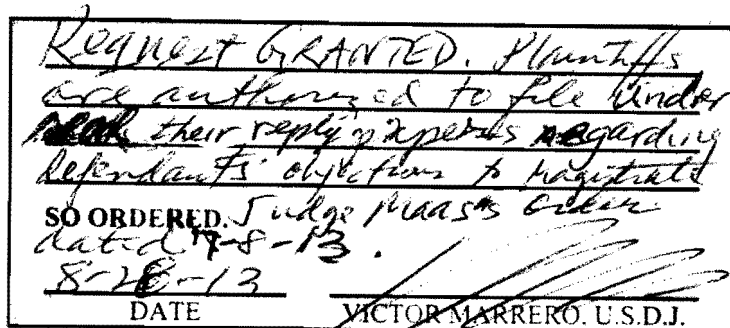 Request GRANTED. Plaintiffs
are authorized to file under
their reply papers regarding
defendants' objections to Magistrate
SO ORDERED. Judge Maas's order
dated 7-8-13.
8-28-13
DATE VICTOR MARRERO, U.S.D.J.